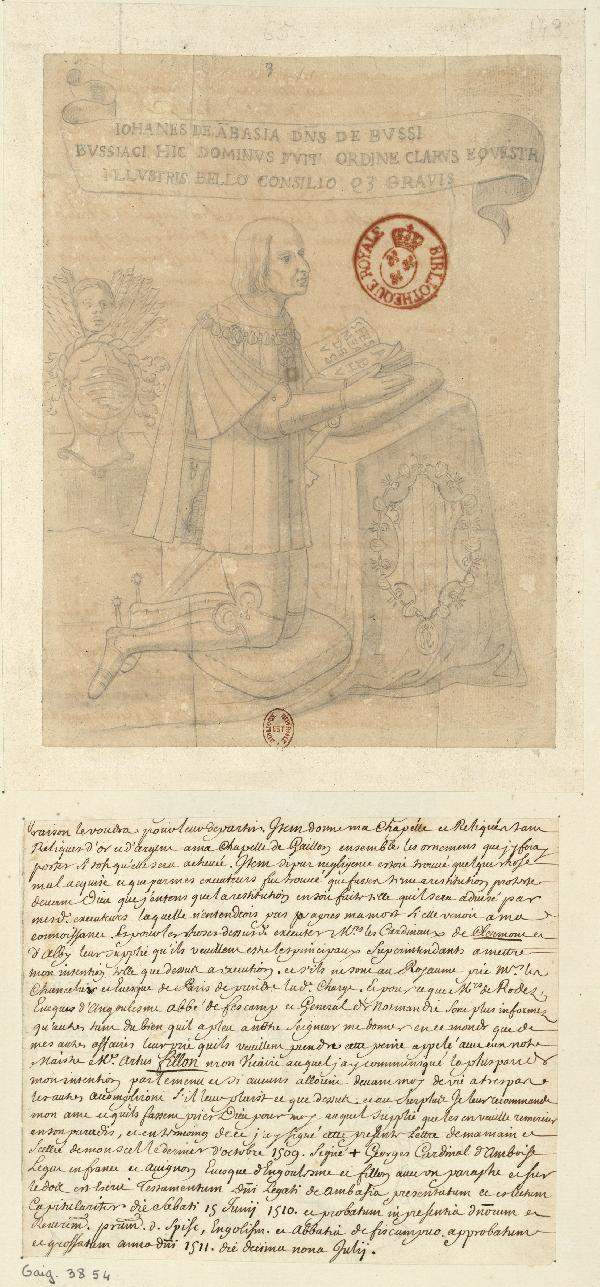 149
3
IOHANES DE ĀBASIA DNS DE BVSSI
BVSSIACI HIC DOMINVS FVIT ORDINE CLARVS EQVESTR
ILLVSTRIS BELLO CONSILIO Q3 GRAVIS
BIBLIOTHEQUE ROYALE
raison le voudra pour leur departir. Item donne ma Chapelle et Reliques tant
Reliques d'or et d'argent a ma Chapelle de Gaillon ensemble les ornemens que j'y
porter qu'elle sera achevée. Item si par negligence estoit trouvé quelque chose
mal acquise et que par mes executeurs fut trouvé que fusse restitution
devant Dieu que j'entens que la restitution en soit faite telle qu'il sera advisé par
mesd. executeurs laquelle n'entendois pas apres ma mort si elle venoit a ma
connoissance. Et pour les choses dessusd. executer Mrs. les Cardinaux de Clermont et
d'Alby leur supplie qu'ils veuillent estre les principaux Superintendants a mettre
mon intention telle que dessus a execution, et s'ils ne sont au Royaume prie Mr. le
Chancelier et Evesque de Paris de prendre lad. Charge. Et pour ce que Mrs. de Rodes,
Evesques d'Angoulesme abbé de fescamp et General de Normandie sont plus informez
qu'autres tant du bien qu'il a pleu a nostre Seigneur me donner en ce monde que de
mes autres affaires leur prie qu'ils veuillent prendre cette peine appelé avec eux notre
Maistre Mr. Artus fillon mon Vicaire auquel j'ay communiqué la plus part de
mon intention
les autres accompliront s'il leur plaist ce que dessus, et au Surplus Je leur recommande
mon ame et qu'ils fassent prier Dieu pour moy, auquel supplie que les en veuille remunerer
en son paradis, et en tesmoing de ce j'ay signé cette presente Lettre de ma main et
scellée de mon scel le dernier d'octobre 1509. Signé + Georges Cardinal d'Amboise
Legat en france et Avignon Evesque d'Engoulesme et fillon avec un paraphe et sur
le dos est escrit Testamentum dñi Legati de Ambasia presentatum et
Capitulariter die Sabati 15 Junij 1510. et probatum in presentia dnorum
d. Epise. Engolism. et Abbatis de fiscampno. approbatum
et grossatum anno dñi 1511. die decima nona Julij.
Gaig. 3854